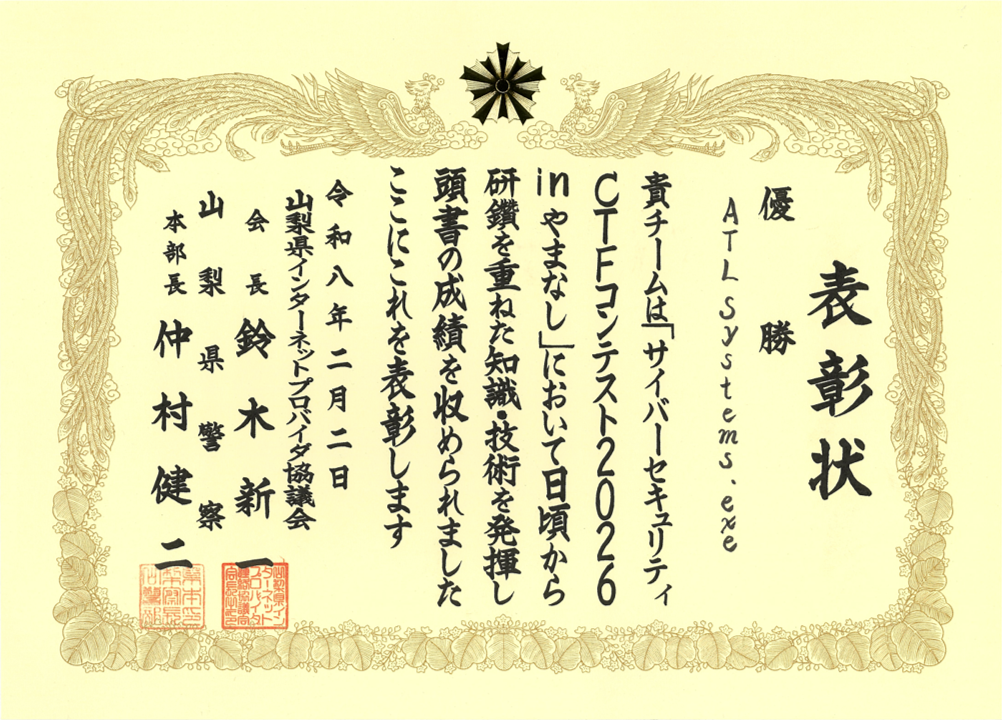 表彰状
優勝
ATLSystems.exe
貴チームは「サイバーセキュリティ
CTFコンテスト2026
inやまなし」において日頃から
研鑽を重ねた知識・技術を発揮し
頭書の成績を収められました
ここにこれを表彰します
令和八年二月二日
山梨県インターネットプロバイダ協議会
会長 鈴木新一
山梨県警察
本部長 仲村健二